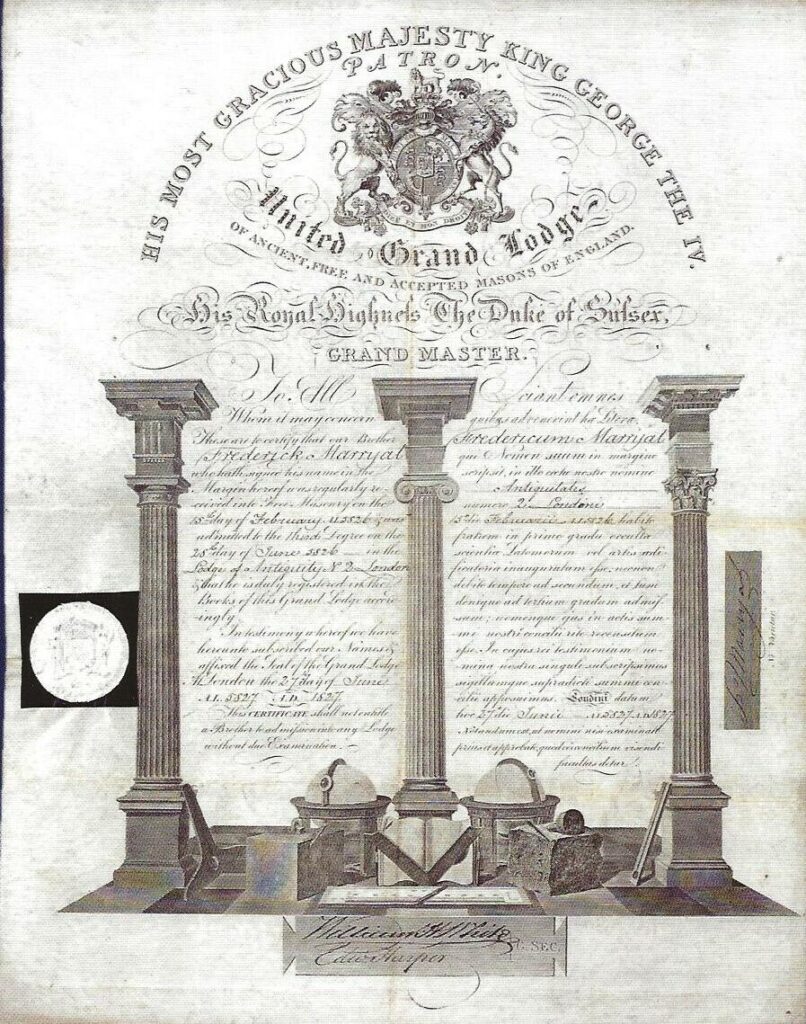 HIS MOST GRACIOUS MAJESTY KING GEORGE THE IV.
PATRON.
United Grand Lodge
OF ANCIENT, FREE AND ACCEPTED MASONS OF ENGLAND.
His Royal Highness The Duke of Sussex,
GRAND MASTER.
To All
Whom it may concern
These are to certify that our Brother
Frederick Marryat
who hath signed his name in the
Margin hereof was regularly re-
ceived into Free Masonry on the
15th day of February 5826 & was
admitted to the Third Degree on the
25th day of June 5826 in the
Lodge of Antiquity No 2 London
& that he is duly registered in the
Books of this Grand Lodge accord-
ingly.
In testimony whereof we have
hereunto subscribed our Names &
affixed the Seal of the Grand Lodge
At London the 27 day of June
A.L. 5827 A.D. 1827.
This CERTIFICATE shall not entitle
a Brother to admission into any Lodge
without due Examination.
Sciant omnes
Fredericum Marryat
qui Nomen suum in margine
scripsit, in
Antiquitatis
numero 2 Londoni
15 die Februarii 5826 habito
fratrem in primo gradu occulta
scientia Latomorum vel artis ædi-
ficatoria inauguratum esse; necnon
debito tempore ad secundum, et
denique ad tertium gradum admis-
sum;
esse. In cujus rei testimonium no-
mina nostra singuli subscripsimus
sigillumque supradicti summi con-
apposuimus. Londini datum
hoc 27 die Junii 5827 1827
facultas detur.
William H White
Edwd Harper
G. SEC.